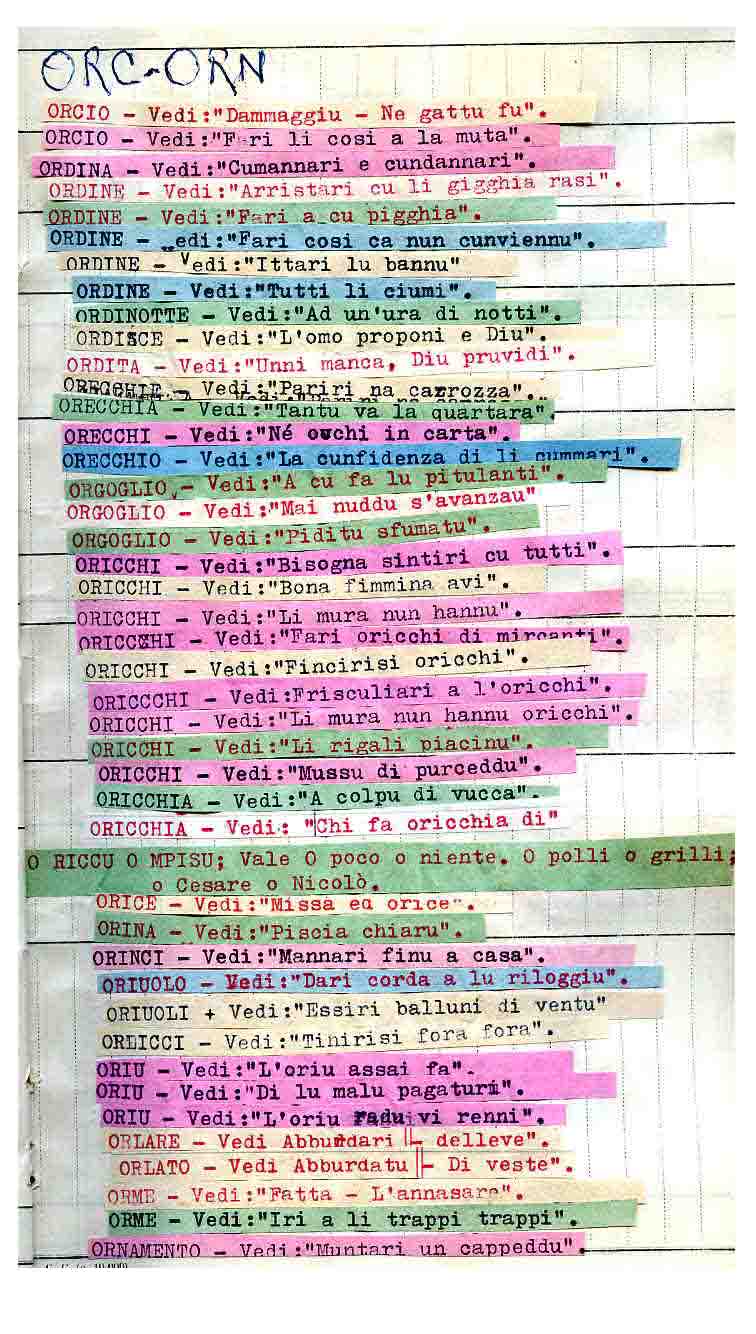 ORC-ORN
ORCIO - Vedi:"Dammaggiu - Ne gattu fu".
ORCIO - Vedi:"Fari li cosi a la muta".
ORDINA - Vedi:"Cumannari e cundannari".
ORDINE - Vedi:"Arristari cu li gigghia rasi".
ORDINE - Vedi:"Fari a cu pigghia".
ORDINE - Vedi:"Fari cosi ca nun cunviennu".
ORDINE - Vedi:"Ittari lu bannu"
ORDINE - Vedi:"Tutti li ciumi".
ORDINOTTE - Vedi:"Ad un'ura di notti".
ORDISCE - Vedi:"L'omo proponi e Diu".
ORDITA - Vedi:"Unni manca, Diu pruvidi".
ORECCHIE - Vedi:"Pariri na carrozza".
ORECCHIA - Vedi:"Tantu va la quartara".
ORECCHI - Vedi:"Né occhi in carta".
ORECCHIO - Vedi:"La cunfidenza di li cummari".
ORGOGLIO - Vedi:"A cu fa lu pitulanti".
ORGOGLIO - Vedi:"Mai nuddu s'avanzau"
ORGOGLIO - Vedi:"Piditu sfumatu".
ORICCHI - Vedi:"Bisogna sintiri cu tutti".
ORICCHI - Vedi:"Bona fimmina avi".
ORICCHI - Vedi:"Li mura nun hannu".
ORICCHI - Vedi:"Fari oricchi di mircanti".
ORICCHI - Vedi:"Fincirisi oricchi".
ORICCCHI - Vedi:Frisculiari a l'oricchi".
ORICCHI - Vedi:"Li mura nun hannu oricchi".
ORICCHI - Vedi:"Li rigali piacinu".
ORICCHI - Vedi:"Mussu di purceddu".
ORICCHIA - Vedi:"A colpu di vucca".
ORICCHIA - Vedi: "Chi fa oricchia di"
O RICCU O MPISU; Vale O poco o niente. O polli o grilli;
o Cesare o Nicolò.
ORICE - Vedi:"Missa ed orice".
ORINA - Vedi:"Piscia chiaru".
ORINCI - Vedi:"Mannari finu a casa".
ORIUOLO - Vedi:"Dari corda a lu riloggiu".
ORIUOLI + Vedi:"Essiri balluni di ventu"
ORLICCI - Vedi:"Tinirisi fora fora".
ORIU - Vedi:"L'oriu assai fa".
ORIU - Vedi:"Di lu malu pagaturi".
ORIU - Vedi:"L'oriu raduivi renni".
ORLARE - Vedi Abburdari - delleve".
ORLATO - Vedi Abburdatu - Di veste".
ORME - Vedi:"Fatta - L'annasare".
ORME - Vedi:"Iri a li trappi trappi".
ORNAMENTO - Vedi:"Muntari un cappeddu".